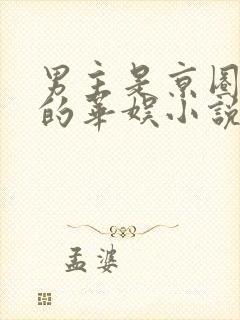 男主是京圈
的华娱小说
孟婆